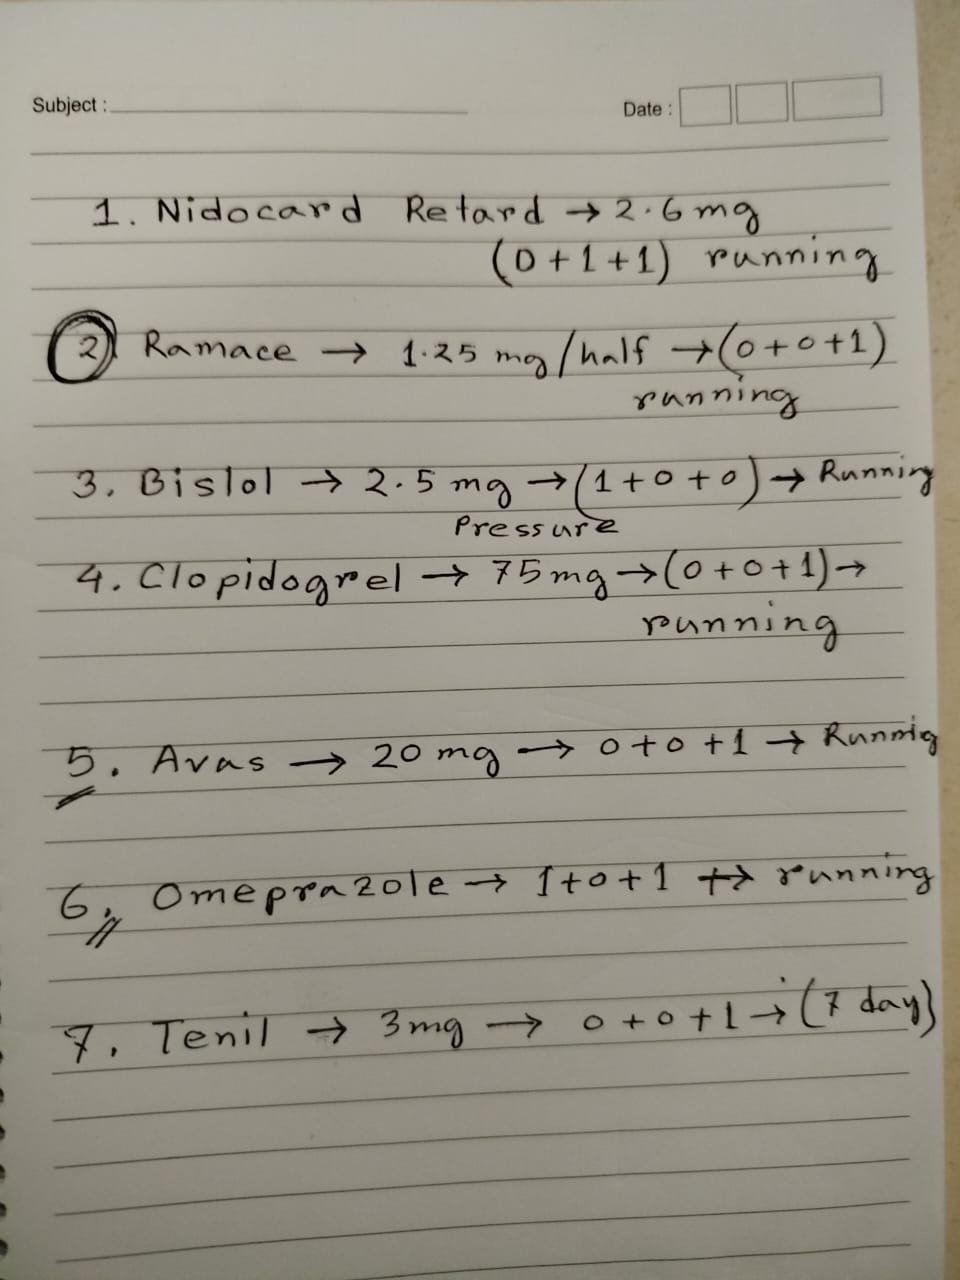 Subject :
Date :
1. Nidocard Retard → 2.6 mg
(0+1+1) running
2. Ramace → 1.25 mg/half → (0+0+1)
running
3. Bislol → 2.5 mg → (1+0+0) → Running
Pressure
4. Clopidogrel → 75 mg → (0+0+1) →
running
5. Avas → 20 mg → 0+0+1 → Running
6. Omeprazole → 1+0+1 → running
7. Tenil → 3mg → 0+0+1 → (7 day)